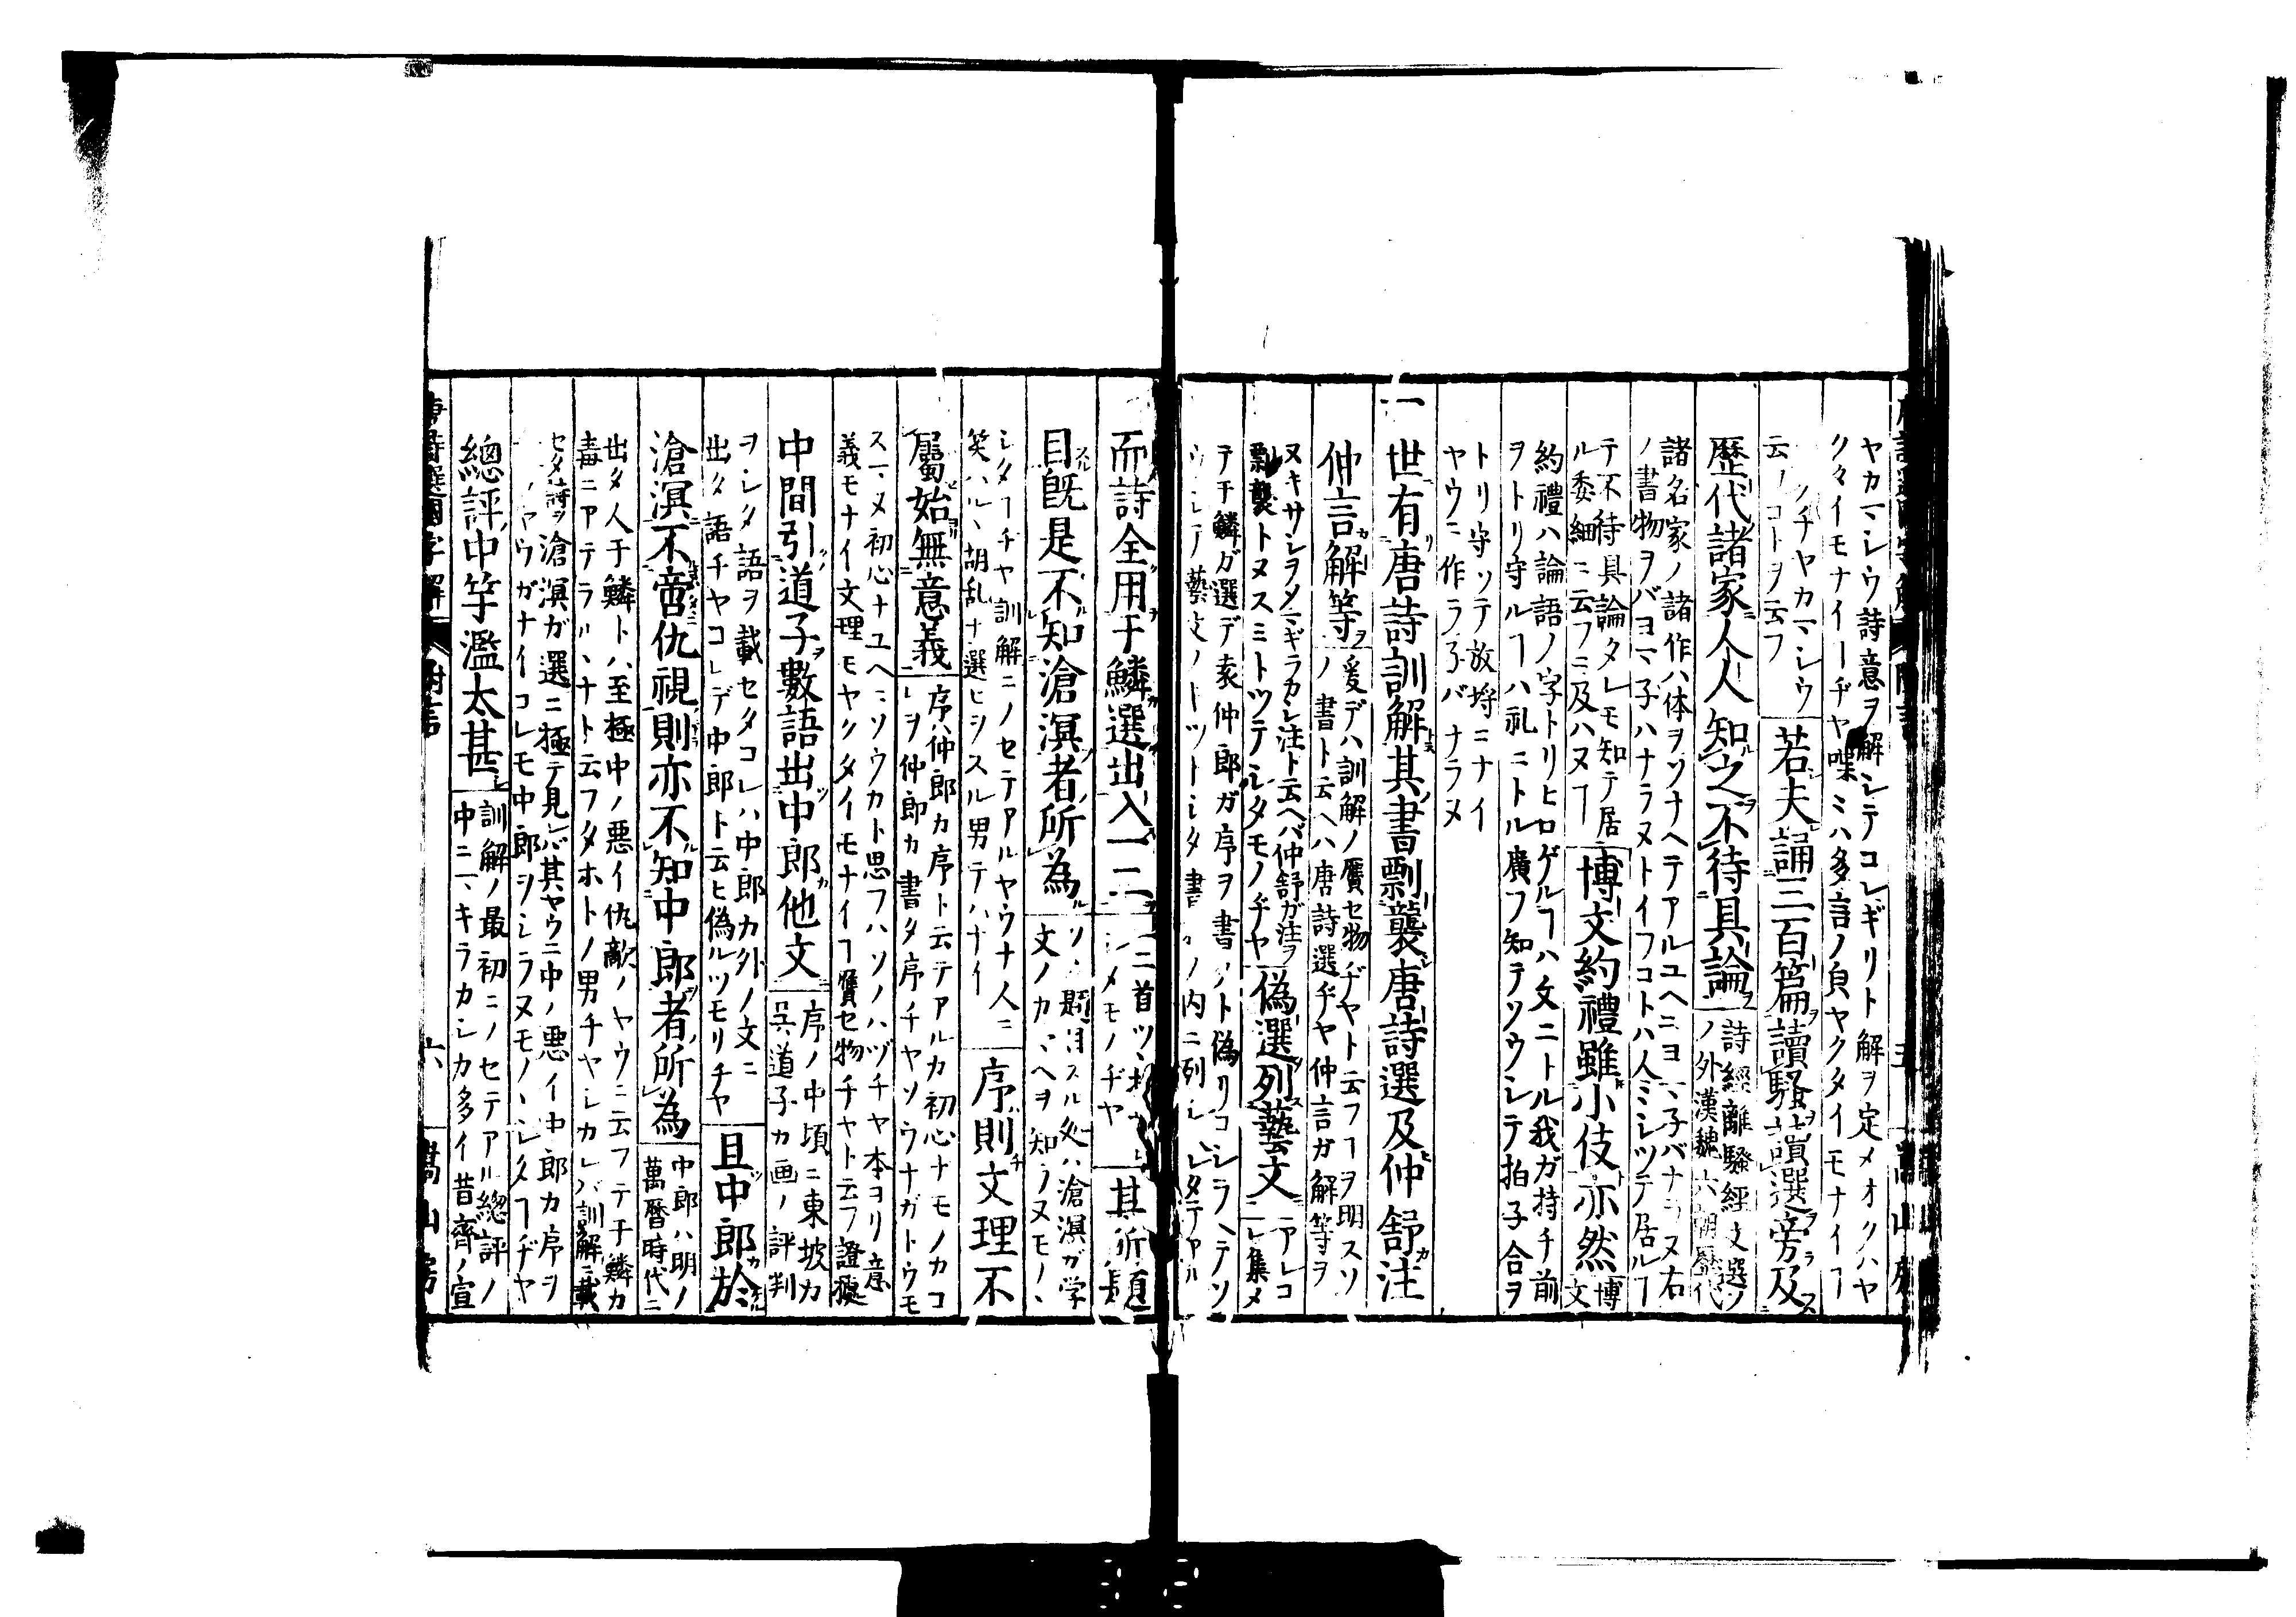 ヤカマシウ詩意ヲ解シテコレギリト解ヲ定メオクハヤ
ク々イモナイヿヂヤ喋ミハ多言ノ皃ヤクタイモナイヿ
ノチヤカマシウ
云ノコトヲ云フ
若夫誦三百篇讀騷讀選旁及
歷代諸家人人知之不待具論
詩經離騷經文選ノ
ノ外漢魏六朝歷代
諸名家ノ諸作ハ体ヲソナヘテアルユヘニヨマ子バナラヌ右
ノ書物ヲバヨマ子ハナラヌトイフコトハ人ミシツテ居ルヿ
テ不待具論タレモ知テ居
ル委細ニ云フニ及ハヌヿ
博文約禮雖小伎亦然
博
文
約禮ハ論語ノ字トリヒロゲルヿハ文ニトル我ガ持チ前
ヲトリ守ルヿハ礼ニトル廣フ知テソウシテ拍子合ヲ
トリ守ツテ放埒ニナイ
ヤウニ作ラ子バナラヌ
一世有唐詩訓解其書剽襲唐詩選及仲舒注
仲言解等
爰デハ訓解ノ贋セ物ヂヤト云フヿヲ明スソ
ノ書ト云ヘハ唐詩選ヂヤ仲言ガ解等ヲ
ヌキサシヲメマギラカシ注ト云ヘバ仲舒ガ注ヲ
剽襲トヌスミトツテシタモノヂヤ
偽選列藝文
アレコ
レ集メ
テ于鱗ガ選デ袁仲郎ガ序ヲ書ノト偽リコシラヘテソ
而詩全用于鱗選出入一二
二首ツ
シメモノヂヤ
其所題
目既是不知滄溟者所為
ソノ題目スル処ハ滄溟ガ学
文ノカマヘヲ知ラヌモノヽ
シタヿヂヤ訓解ニノセテアルヤウナ人ニ
笑ハルヽ胡乱ナ選ヒヲスル男テハナイ
序則文理不
屬始無意義
序ハ仲郎カ序ト云テアルカ初心ナモノカコ
レヲ仲郎カ書タ序チヤソウナガトウモ
スマヌ初心ナユヘニソウカト思フハソノハヅチヤ本ヨリ意
義モナイ文理モヤクタイモナイヿ贋セ物チヤト云フ證據
中間引道子數語出中郎他文
序ノ中頃ニ東坡カ
呉道子カ画ノ評判
ヲシタ語ヲ載セタコレハ中郎カ外ノ文ニ
出タ語チヤコレデ中郎ト云ヒ偽ルツモリチヤ
且中郎於
滄溟不啻仇視則亦不知中郎者所為
中郎ハ明ノ
萬曆時代ニ
出タ人于鱗トハ至極中ノ悪イ仇敵ノヤウニ云フテ于鱗カ
毒ニアテラルヽナト云フタホトノ男チヤシカレバ訓解ニ載
セタ詩ヲ滄溟ガ選ニ極テ見レバ其ヤウニ中ノ悪イ中郎カ序ヲ
ヤウガナイコレモ中郎ヲシラヌモノヽシタヿヂヤ
總評中竽濫太甚
訓解ノ最初ニノセテアル總評ノ
中ニマキラカシカ多イ昔齊ノ宣
唐詩選國字解 附言 六 嵩山房